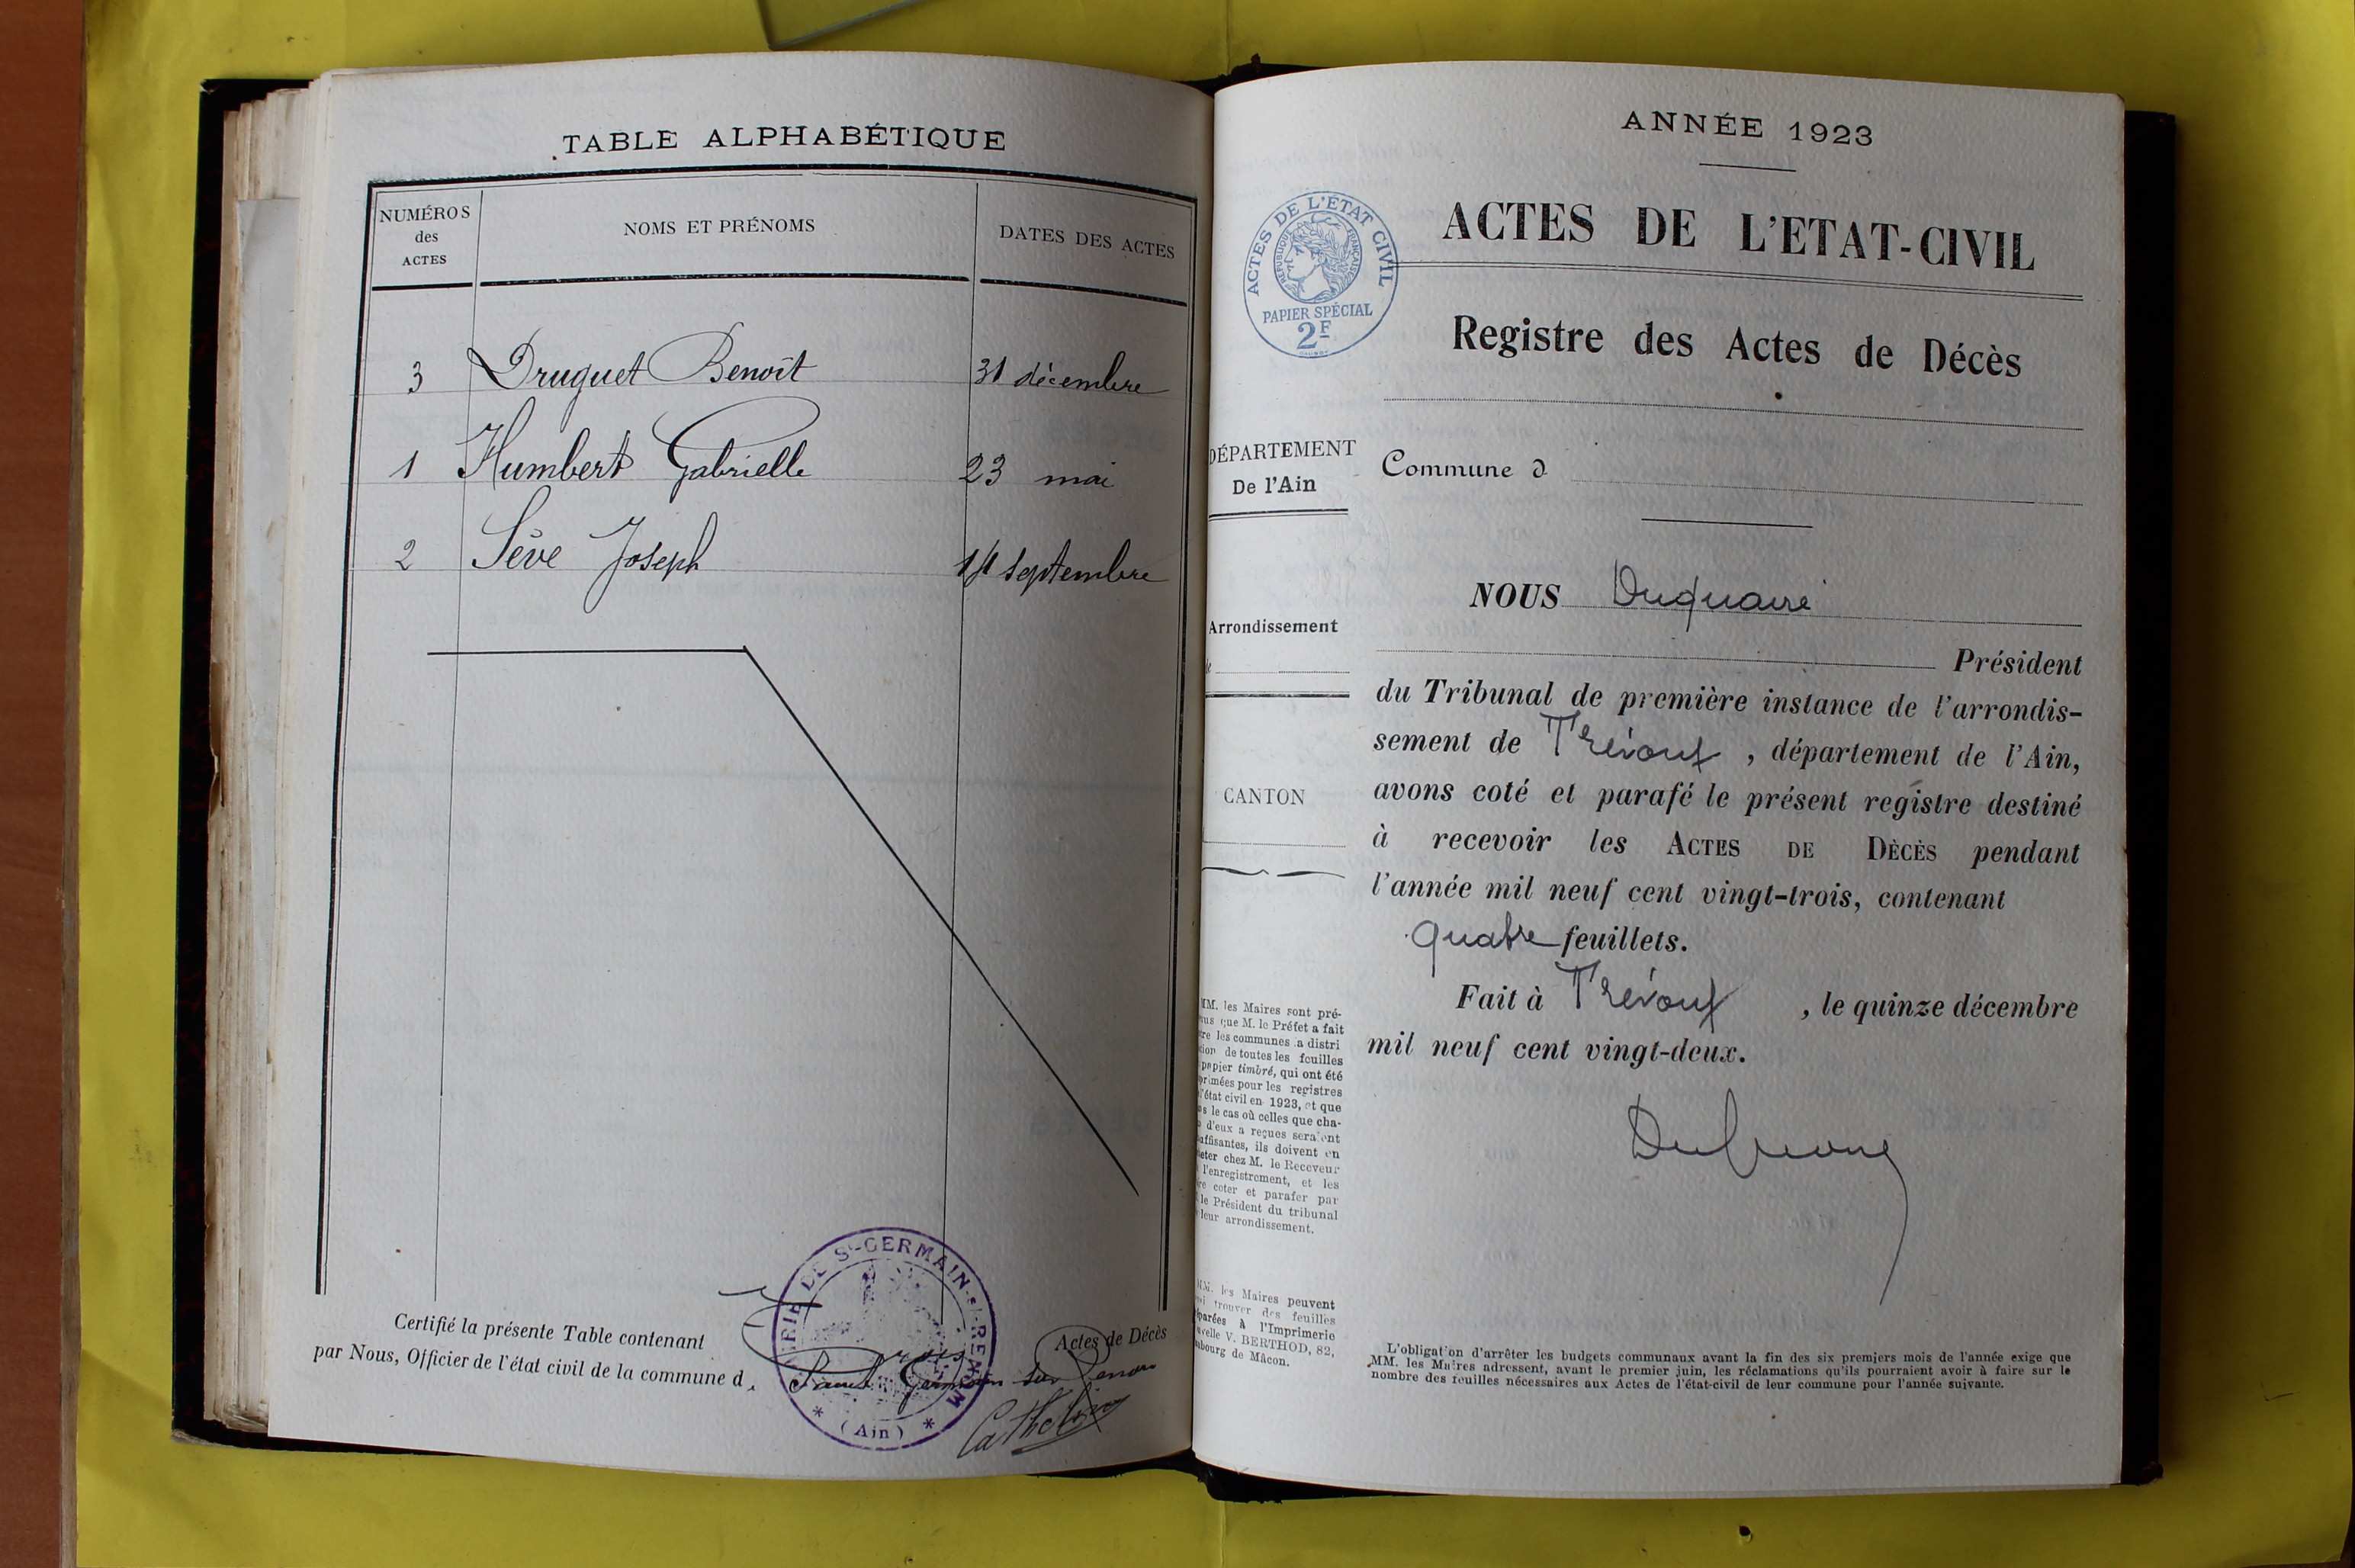 TABLE ALPHABÉTIQUE
NUMÉROS des ACTES
NOMS ET PRÉNOMS
DATES DES ACTES
3 Druguet Benoît 31 décembre
1 Humbert Gabrielle 23 mai
2 Sève Joseph 14 septembre
Certifié la présente Table contenant trois Actes de Décès
par Nous, Officier de l'état civil de la commune d Saint Germain sur Renon
MAIRIE DE St-GERMAIN-s/-RENOM
* (Ain) *
Cathelin
ANNÉE 1923
ACTES DE L'ÉTAT CIVIL
RÉPUBLIQUE FRANÇAISE
PAPIER SPÉCIAL
2F
ACTES DE L'ETAT-CIVIL
Registre des Actes de Décès
DÉPARTEMENT
De l'Ain
Commune d
Arrondissement
CANTON
NOUS Duquaire
Président
du Tribunal de première instance de l'arrondis-
sement de Trévoux , département de l'Ain,
avons coté et parafé le présent registre destiné
à recevoir les ACTES DE DÈCÈS pendant
l'année mil neuf cent vingt-trois, contenant
quatre feuillets.
Fait à Trévoux , le quinze décembre
mil neuf cent vingt-deux.
MM. les Maires sont pré-
nus que M. le Préfet a fait
re les communes a distri
tion de toutes les feuilles
papier timbré, qui ont été
primées pour les registres
l'état civil en 1923, et que
s le cas où celles que cha-
d'eux a reçues seraient
uffisantes, ils doivent en
eter chez M. le Receveur
l'enregistrement, et les
re coter et parafer par
le Président du tribunal
leur arrondissement.
MM. les Maires peuvent
trouver des feuilles
parées à l'Imprimerie
uvelle V. BERTHOD, 82,
bourg de Mâcon.
L'obligation d'arrêter les budgets communaux avant la fin des six premiers mois de l'année exige que
MM. les Maires adressent, avant le premier juin, les réclamations qu'ils pourraient avoir à faire sur le
nombre des feuilles nécessaires aux Actes de l'état-civil de leur commune pour l'année suivante.